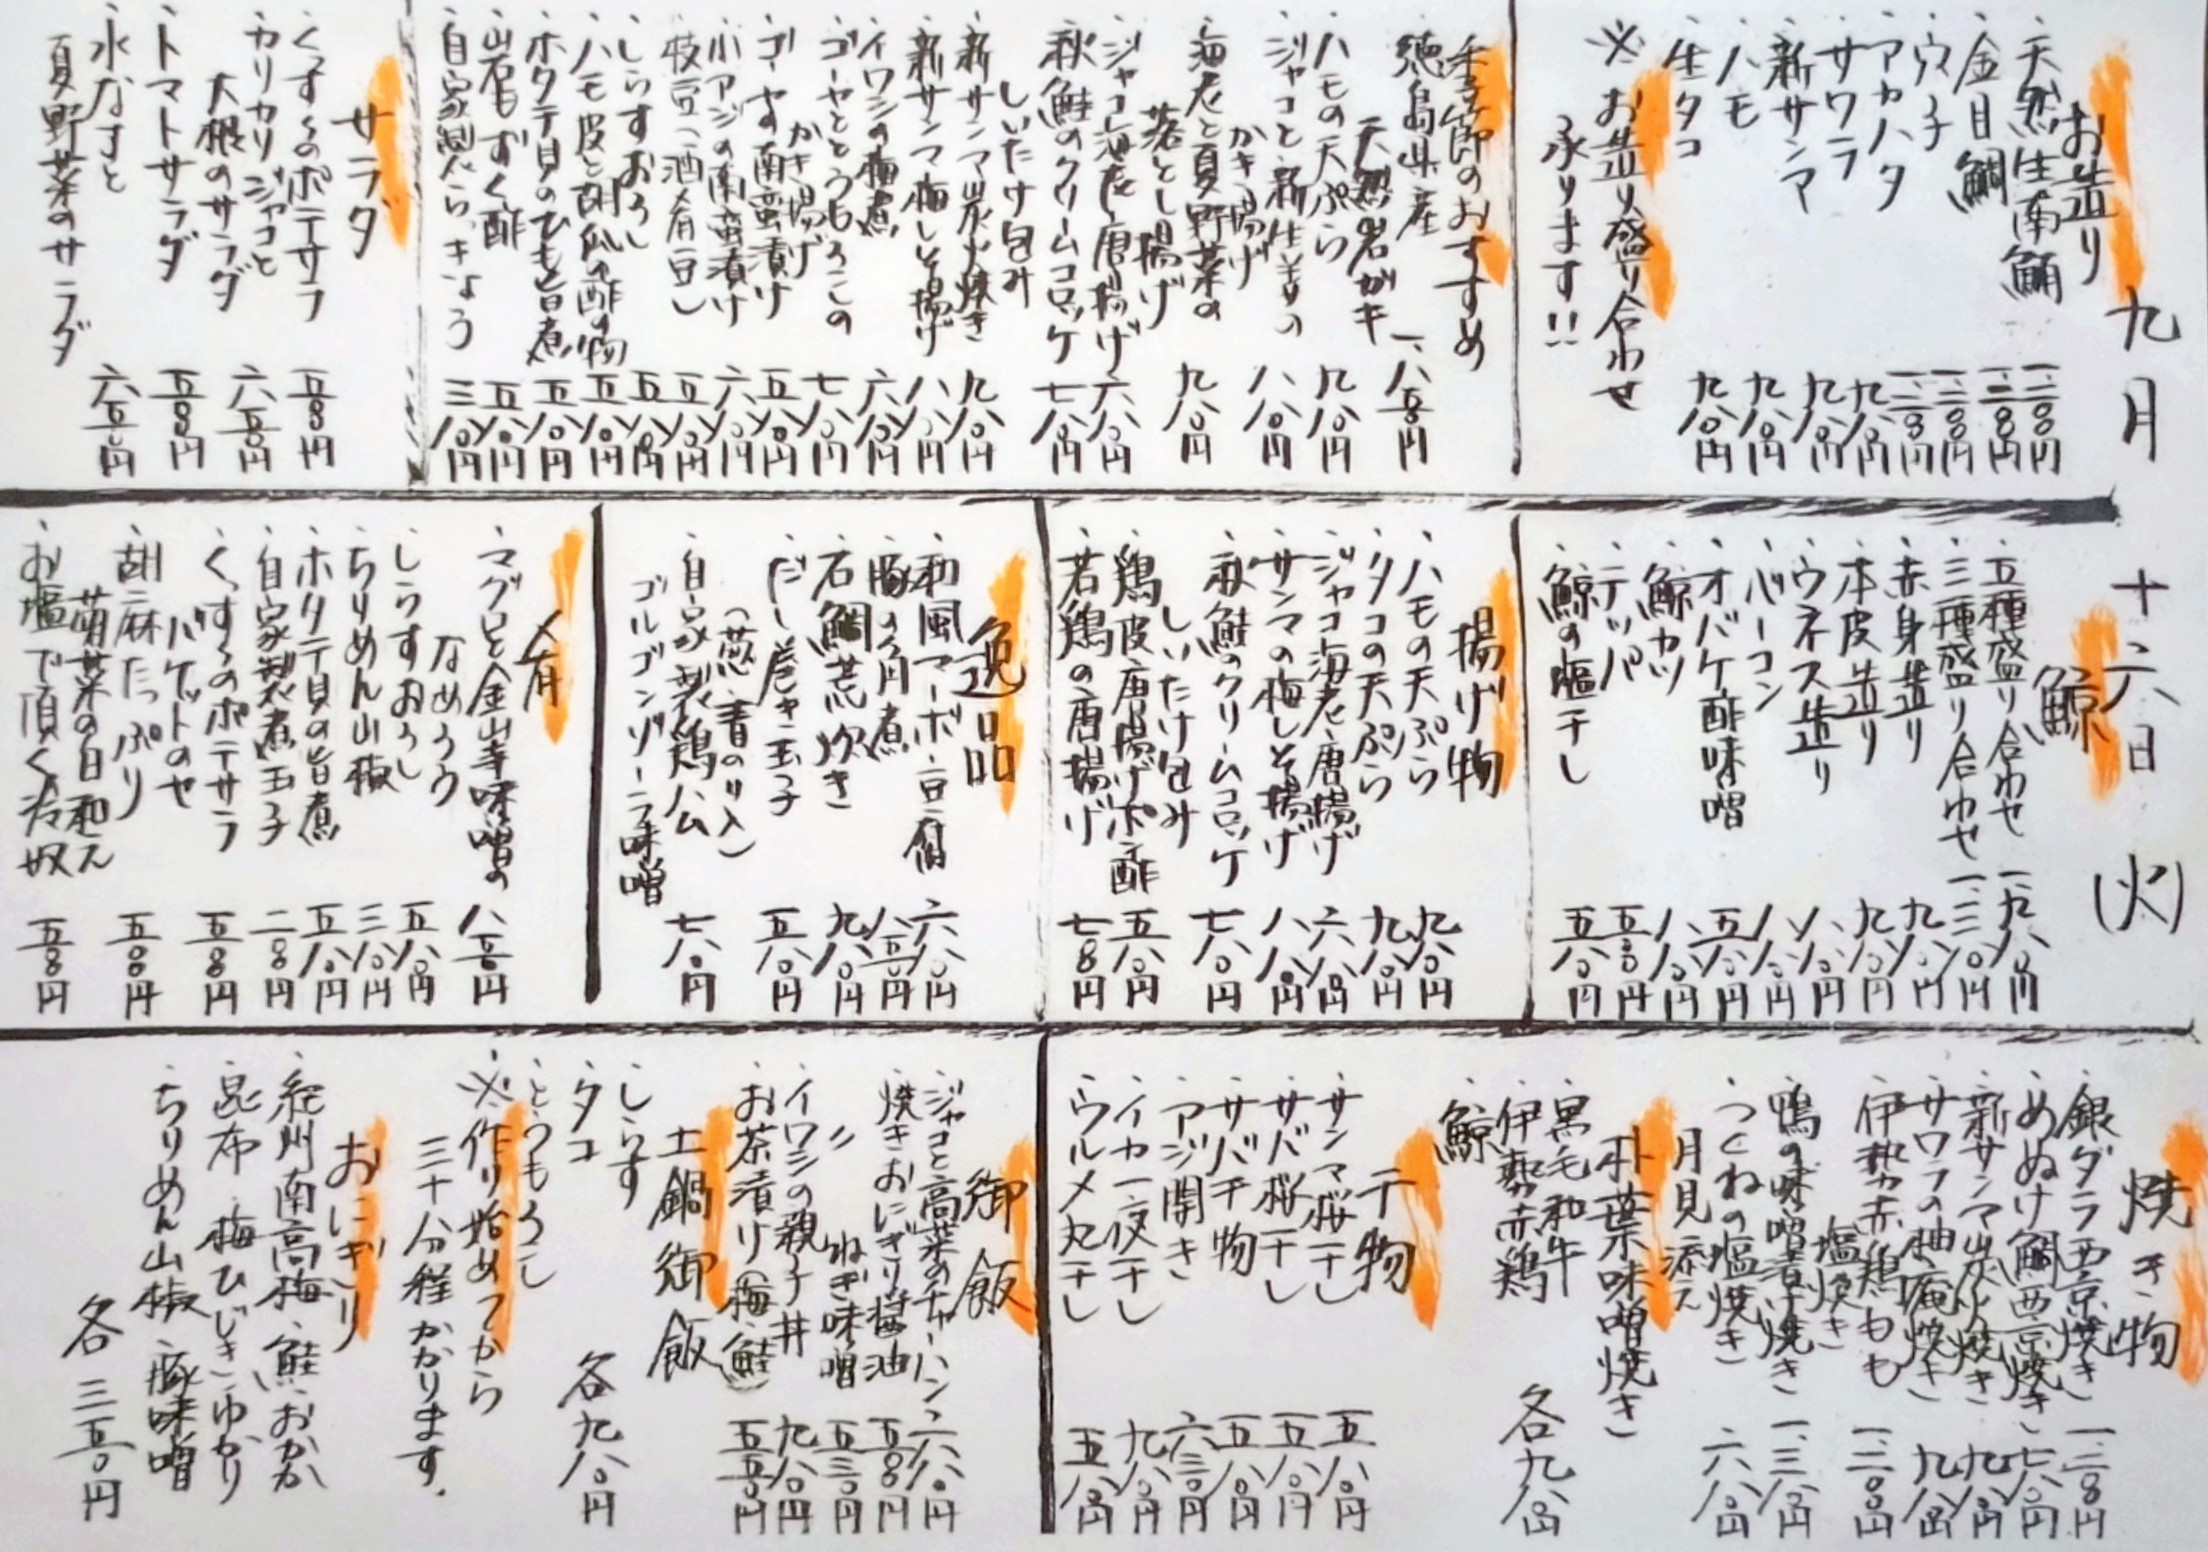 九月十六日(火)
お造り
・天然生南鮪 一、二〇〇円
・金目鯛
・ウニ
・アカハタ 九八〇円
・サワラ 九八〇円
・新サンマ 九八〇円
・ハモ 九八〇円
・生タコ 九八〇円
※お造り盛り合わせ
承ります!!
季節のおすすめ
・徳島県産
天然岩ガキ 一、八五〇円
・ハモの天ぷら 九八〇円
・ジャコと新生姜の
かき揚げ 八八〇円
・海老と夏野菜の
落とし揚げ 九八〇円
・ジャコ海老唐揚げ 六八〇円
・秋鮭のクリームコロッケ
しいたけ包み 七八〇円
・新サンマ炭火焼き 九八〇円
・新サンマ梅しそ揚げ 八八〇円
・イワシの梅煮 六八〇円
・ゴーヤとうもろこしの
かき揚げ 七八〇円
・ゴーヤの南蛮漬け 五八〇円
・小アジの南蛮漬け 六八〇円
・枝豆(酒肴豆) 五八〇円
・しらすおろし 五八〇円
・ハモ皮と胡瓜の酢の物 五八〇円
・ホタテ貝のひも旨煮 五八〇円
・岩もずく酢 五八〇円
・自家製らっきょう 三八〇円
サラダ
・くっすんのポテサラ 五八〇円
・カリカリジャコと
大根のサラダ 六五〇円
・トマトサラダ 五八〇円
・水なすと
夏野菜のサラダ 六五〇円
鯨
・五種盛り合わせ 一、九八〇円
・三種盛り合わせ 一、三八〇円
・赤身造り 九八〇円
・本皮造り 九八〇円
・ウネス造り 八八〇円
・ベーコン 八八〇円
・オバケ酢味噌 五八〇円
・鯨カツ 八八〇円
・テッパ 五八〇円
・鯨の塩干し 五八〇円
揚げ物
・ハモの天ぷら 九八〇円
・タコの天ぷら 九八〇円
・ジャコ海老唐揚げ 六八〇円
・サンマの梅しそ揚げ 八八〇円
・秋鮭のクリームコロッケ
しいたけ包み 七八〇円
・鶏皮唐揚げポン酢 五八〇円
・若鶏の唐揚げ 七八〇円
逸品
・和風マーボー豆腐 六八〇円
・豚の角煮 八五〇円
・石鯛荒炊き 九八〇円
・だし巻き玉子
(葱・青のり入) 五八〇円
・自家製鶏ハム
ゴルゴンゾーラ味噌 七八〇円
肴
・マグロと金山寺味噌の
なめろう 八五〇円
・しらすおろし 五八〇円
・ちりめん山椒 三八〇円
・ホタテ貝の旨煮 五八〇円
・自家製煮玉子 二八〇円
・くっすんのポテサラ
バケットのせ 五八〇円
・胡麻たっぷり
青菜の白和え 五八〇円
・お塩で頂く冷奴 五八〇円
焼き物
・銀ダラ西京焼き 一、二八〇円
・めぬけ鯛西京焼き 七八〇円
・新サンマ炭火焼き 九八〇円
・サワラの柚庵焼き 九八〇円
・伊勢赤鶏もも
塩焼き
・鴨の味噌幸焼き 一、三八〇円
・つくねの塩焼き
月見添え 六八〇円
朴葉味噌焼き
・黒毛和牛
・伊勢赤鶏
・鯨
各九八〇円
干物
・サンマ桜干し 五八〇円
・サバ桜干し 五八〇円
・サバ干物 五八〇円
・アジ開き 六三〇円
・イカ一夜干し 九八〇円
・ウルメ丸干し 五八〇円
御飯
・ジャコと高菜のチャーハン 六八〇円
・焼きおにぎり醤油 五〇〇円
・〃 ねぎ味噌 五三〇円
・イワシの親子丼 九八〇円
・お茶漬け(梅・鮭) 五五〇円
土鍋御飯
・しらす
・タコ
・とうもろこし
各九八〇円
※作り始めてから
三十分程かかります。
おにぎり
・紀州南高梅・鮭・おかか
・昆布・梅ひじき・ゆかり
・ちりめん山椒・豚味噌
各三五〇円